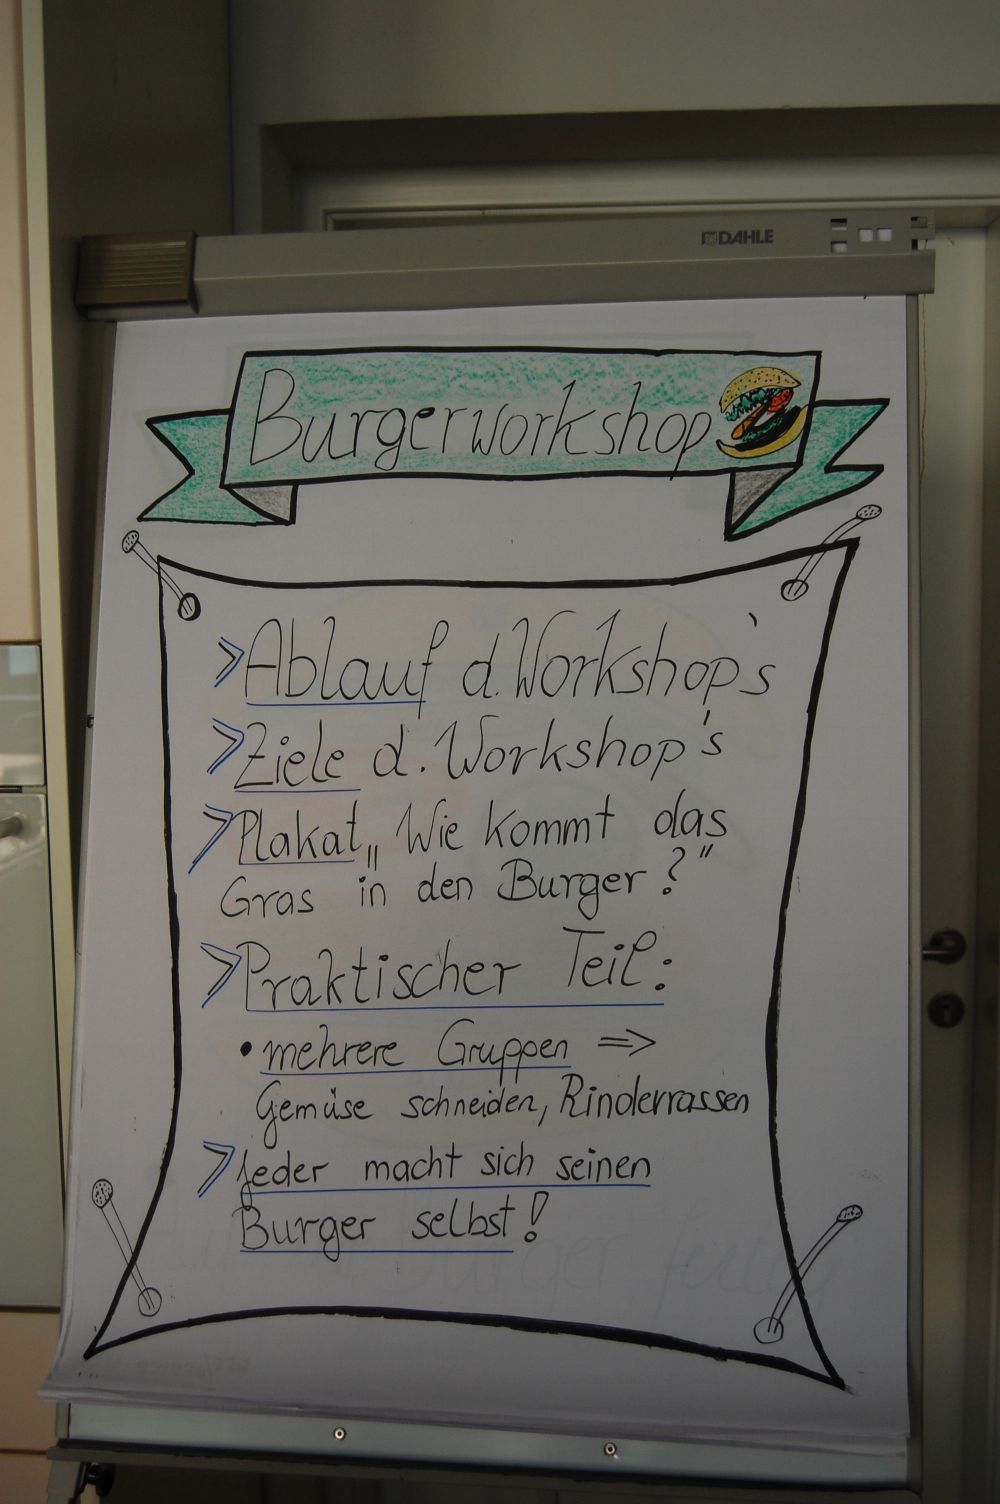 DAHLE
Burgerworkshop
> Ablauf d. Workshop's
> Ziele d. Workshop's
> Plakat „Wie kommt das
Gras in den Burger?"
> Praktischer Teil:
• mehrere Gruppen =>
Gemüse schneiden, Rinderrassen
> Jeder macht sich seinen
Burger selbst!